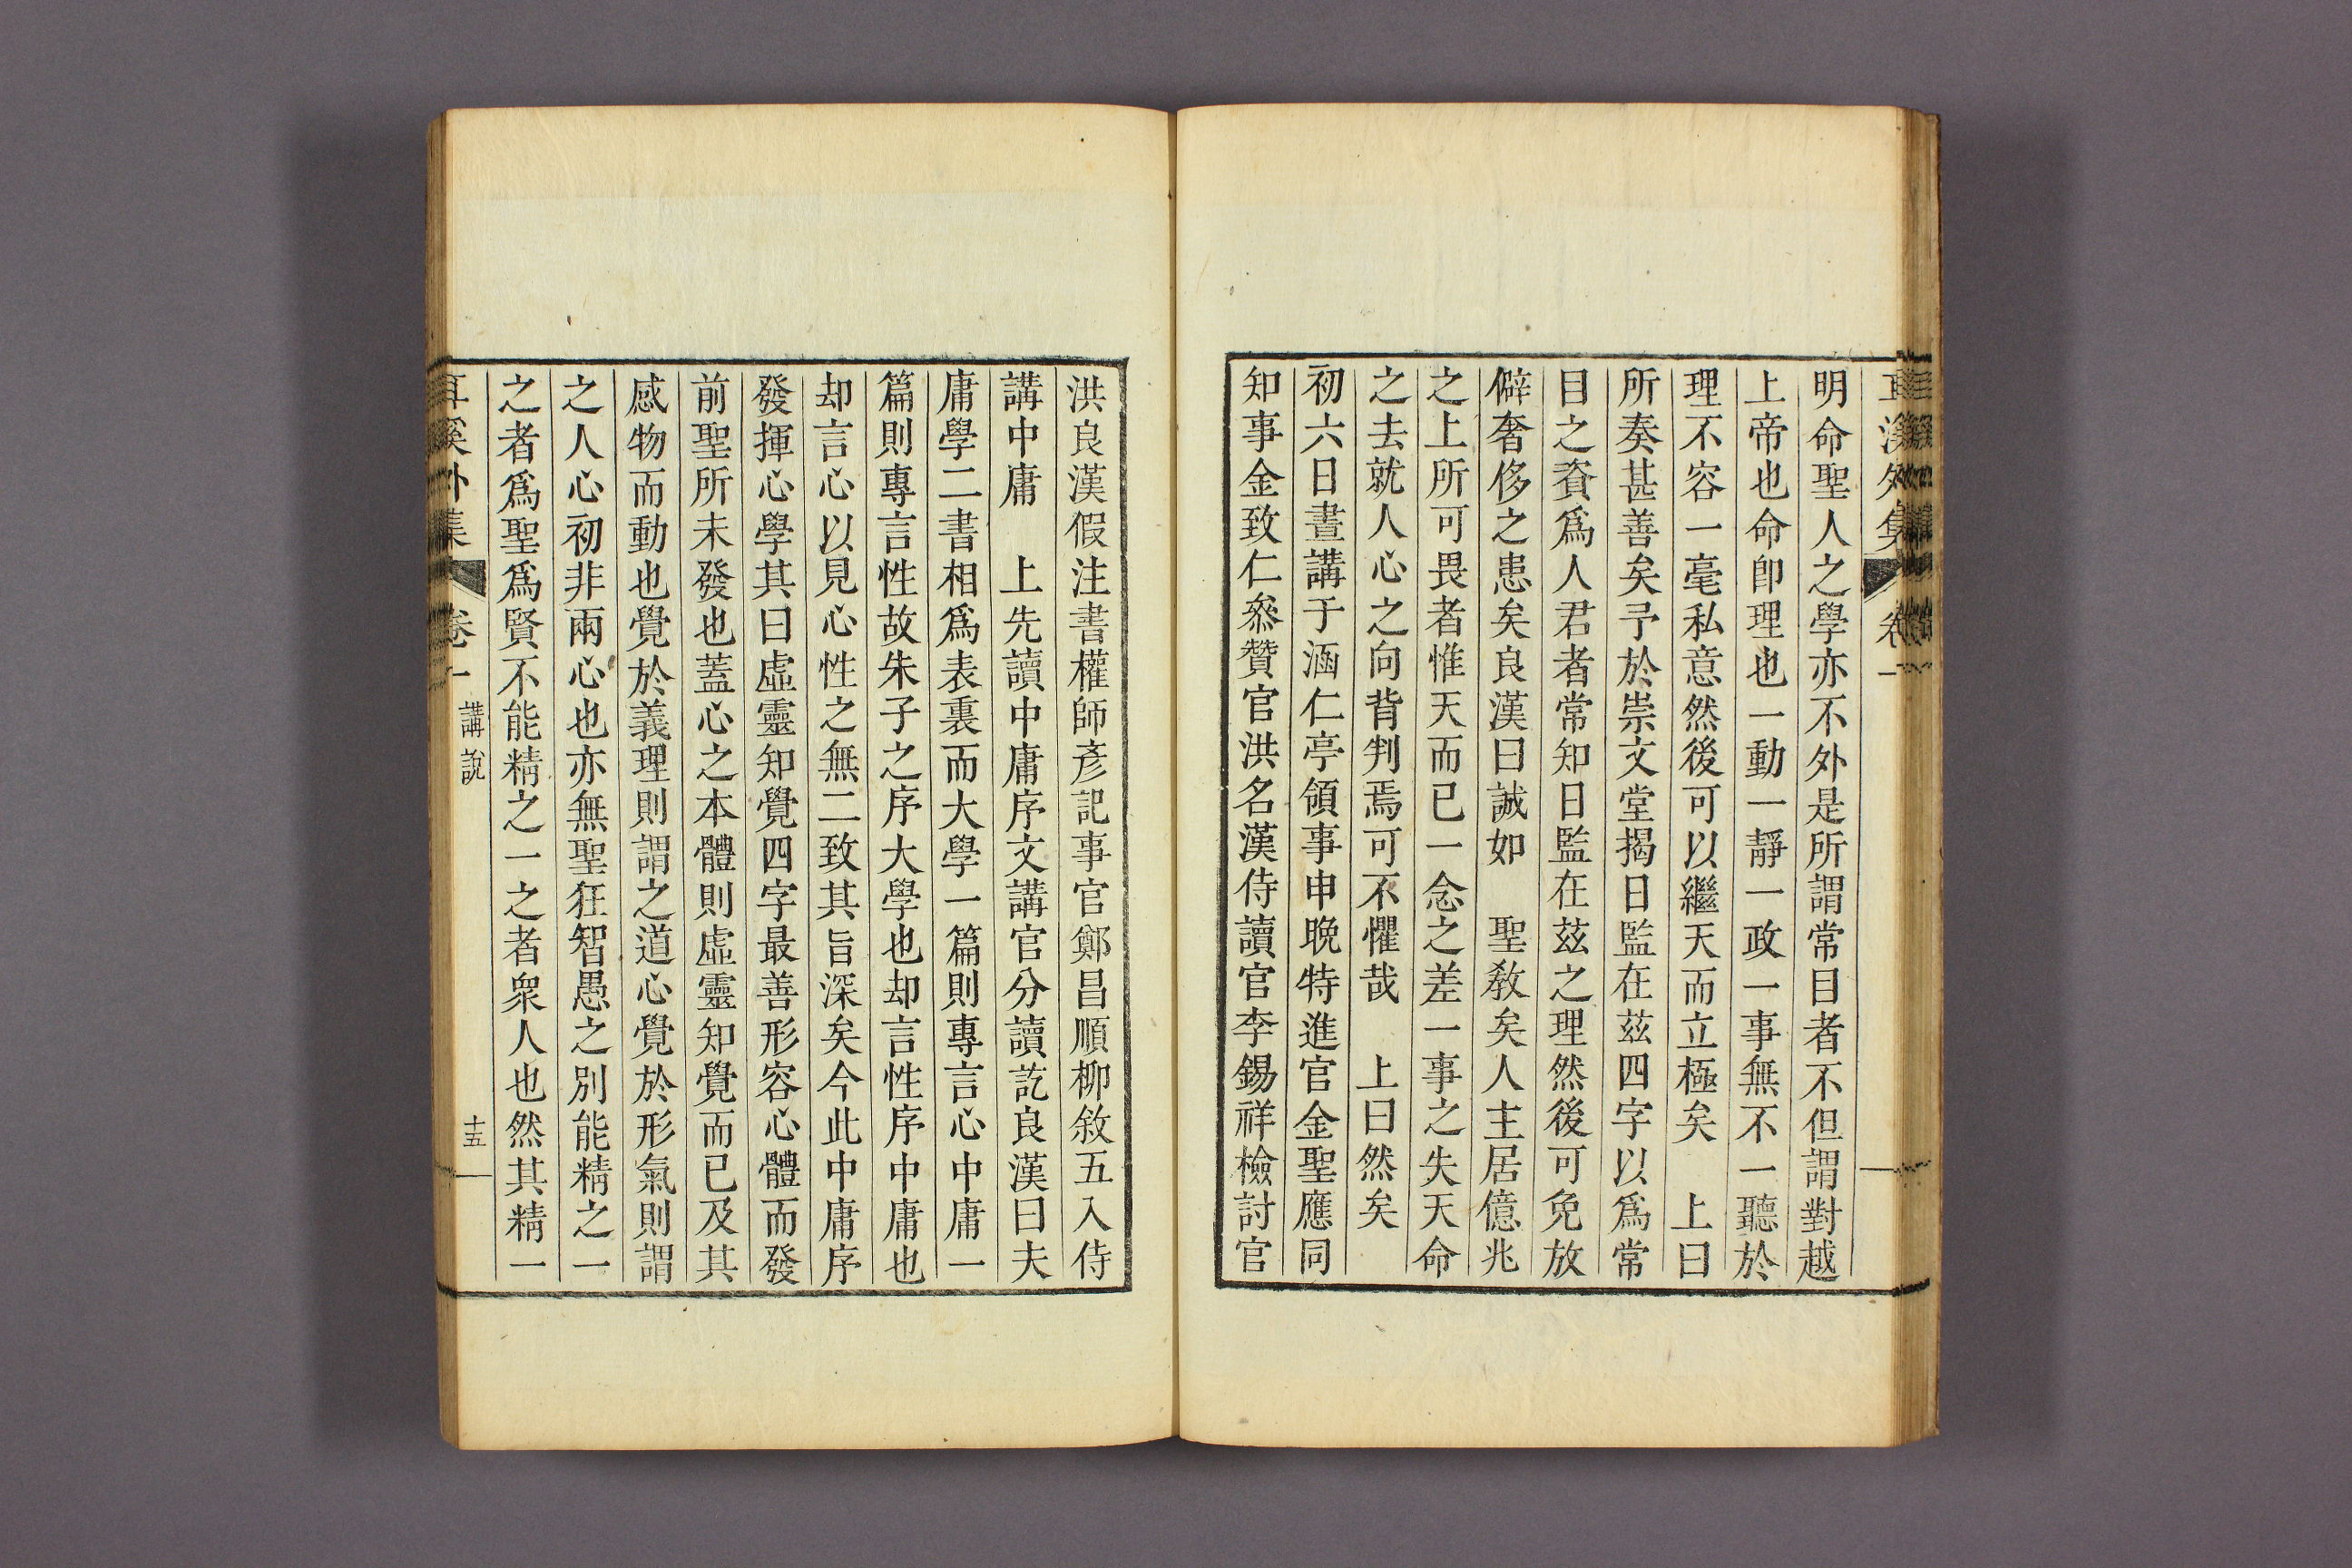 耳溪外集 卷一
明命聖人之學亦不外是所謂常目者不但謂對越
上帝也命卽理也一動一靜一政一事無不一聽於
理不容一毫私意然後可以繼天而立極矣 上曰
所奏甚善矣予於崇文堂揭日監在玆四字以爲常
目之資爲人君者常知日監在玆之理然後可免放
僻奢侈之患矣良漢曰誠如 聖敎矣人主居億兆
之上所可畏者惟天而已一念之差一事之失天命
之去就人心之向背判焉可不懼哉 上曰然矣
初六日晝講于涵仁亭領事申晩特進官金聖應同
知事金致仁叅贊官洪名漢侍讀官李錫祥檢討官
洪良漢假注書權師彦記事官鄭昌順柳敘五入侍
講中庸 上先讀中庸序文講官分讀訖良漢曰夫
庸學二書相爲表裏而大學一篇則專言心中庸一
篇則專言性故朱子之序大學也却言性序中庸也
却言心以見心性之無二致其旨深矣今此中庸序
發揮心學其曰虛靈知覺四字最善形容心體而發
前聖所未發也蓋心之本體則虛靈知覺而已及其
感物而動也覺於義理則謂之道心覺於形氣則謂
之人心初非兩心也亦無聖狂智愚之別能精之一
之者爲聖爲賢不能精之一之者衆人也然其精一
耳溪外集 卷一 講說 十五